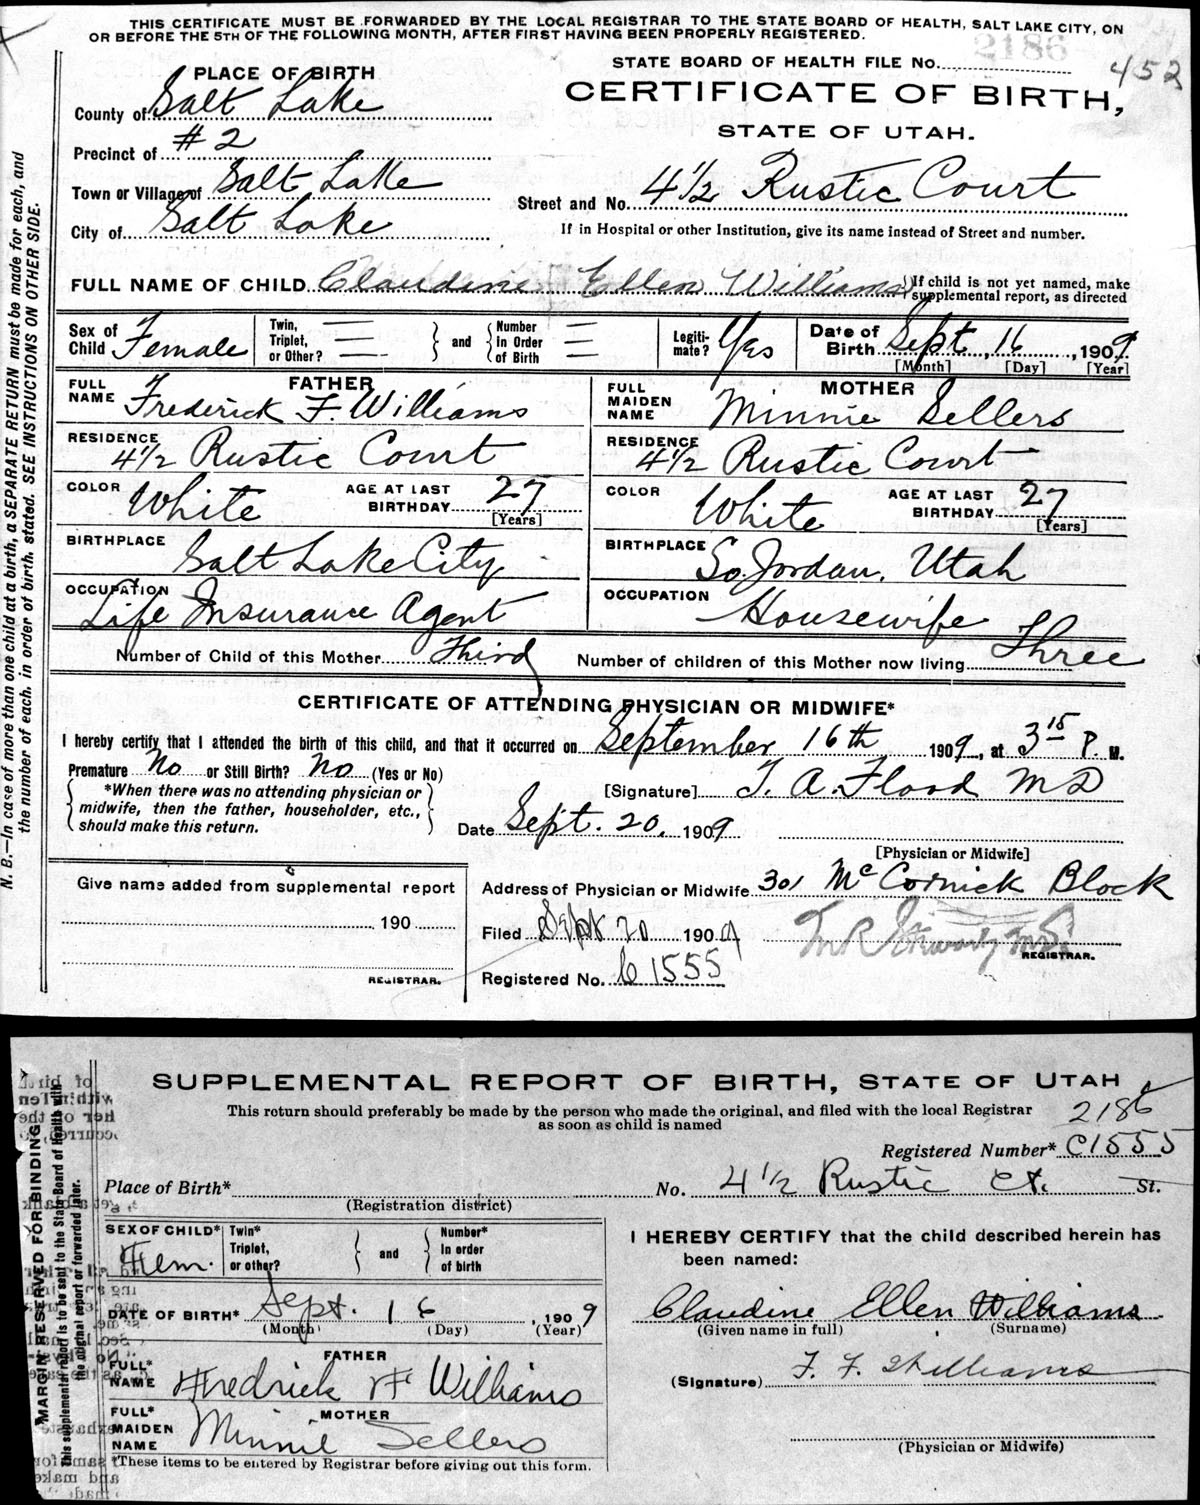 THIS CERTIFICATE MUST BE FORWARDED BY THE LOCAL REGISTRAR TO THE STATE BOARD OF HEALTH, SALT LAKE CITY, ON
OR BEFORE THE 5TH OF THE FOLLOWING MONTH, AFTER FIRST HAVING BEEN PROPERLY REGISTERED.
2186
452
STATE BOARD OF HEALTH FILE No.
CERTIFICATE OF BIRTH,
STATE OF UTAH.
PLACE OF BIRTH
County of Salt Lake
Precinct of #2
Town or Village of Salt Lake
City of Salt Lake
Street and No. 4 1/2 Rustic Court
If in Hospital or other Institution, give its name instead of Street and number.
FULL NAME OF CHILD Claudine Ellen Williams
If child is not yet named, make
supplemental report, as directed
Sex of Child Female
Twin, Triplet, or Other?
and
Number In Order of Birth
Legiti-mate? Yes
Date of Birth Sept, 16, 1909.
[Month] [Day] [Year]
FATHER
FULL NAME Frederick F. Williams
RESIDENCE 4 1/2 Rustic Court
COLOR White
AGE AT LAST BIRTHDAY 27
[Years]
BIRTHPLACE Salt Lake City
OCCUPATION Life Insurance Agent
MOTHER
FULL MAIDEN NAME Minnie Sellers
RESIDENCE 4 1/2 Rustic Court
COLOR White
AGE AT LAST BIRTHDAY 27
[Years]
BIRTHPLACE So. Jordan, Utah
OCCUPATION Housewife
Number of Child of this Mother Third
Number of children of this Mother now living Three
CERTIFICATE OF ATTENDING PHYSICIAN OR MIDWIFE*
I hereby certify that I attended the birth of this child, and that it occurred on September 16th 1909, at 3 15 P. M.
Premature No or Still Birth? No (Yes or No)
*When there was no attending physician or
midwife, then the father, householder, etc.,
should make this return.
[Signature] T. A. Flood MD
Date Sept. 20, 1909
[Physician or Midwife]
Give name added from supplemental report
190
REGISTRAR.
Address of Physician or Midwife 301 McCornick Block
Filed Sept 20 1909
REGISTRAR.
Registered No. C1555
N. B.—In case of more than one child at a birth, a SEPARATE RETURN must be made for each, and
the number of each, in order of birth, stated. SEE INSTRUCTIONS ON OTHER SIDE.
SUPPLEMENTAL REPORT OF BIRTH, STATE OF UTAH
This return should preferably be made by the person who made the original, and filed with the local Registrar
as soon as child is named
2186
Registered Number* C1555
Place of Birth*
(Registration district)
No. 4 1/2 Rustic Ct. St.
SEX OF CHILD* Fem.
Twin* Triplet, or other?
and
Number* In order of birth
DATE OF BIRTH* Sept. 16, 1909
(Month) (Day) (Year)
FATHER
FULL* NAME Fredrick F Williams
MOTHER
FULL* MAIDEN NAME Minnie Sellers
*These items to be entered by Registrar before giving out this form.
I HEREBY CERTIFY that the child described herein has
been named:
Claudine Ellen Williams
(Given name in full) (Surname)
(Signature) F. F. Williams
(Physician or Midwife)
MARGIN RESERVED FOR BINDING
This supplemental report is to be sent to the State Board of Health with
the original report or forwarded later.